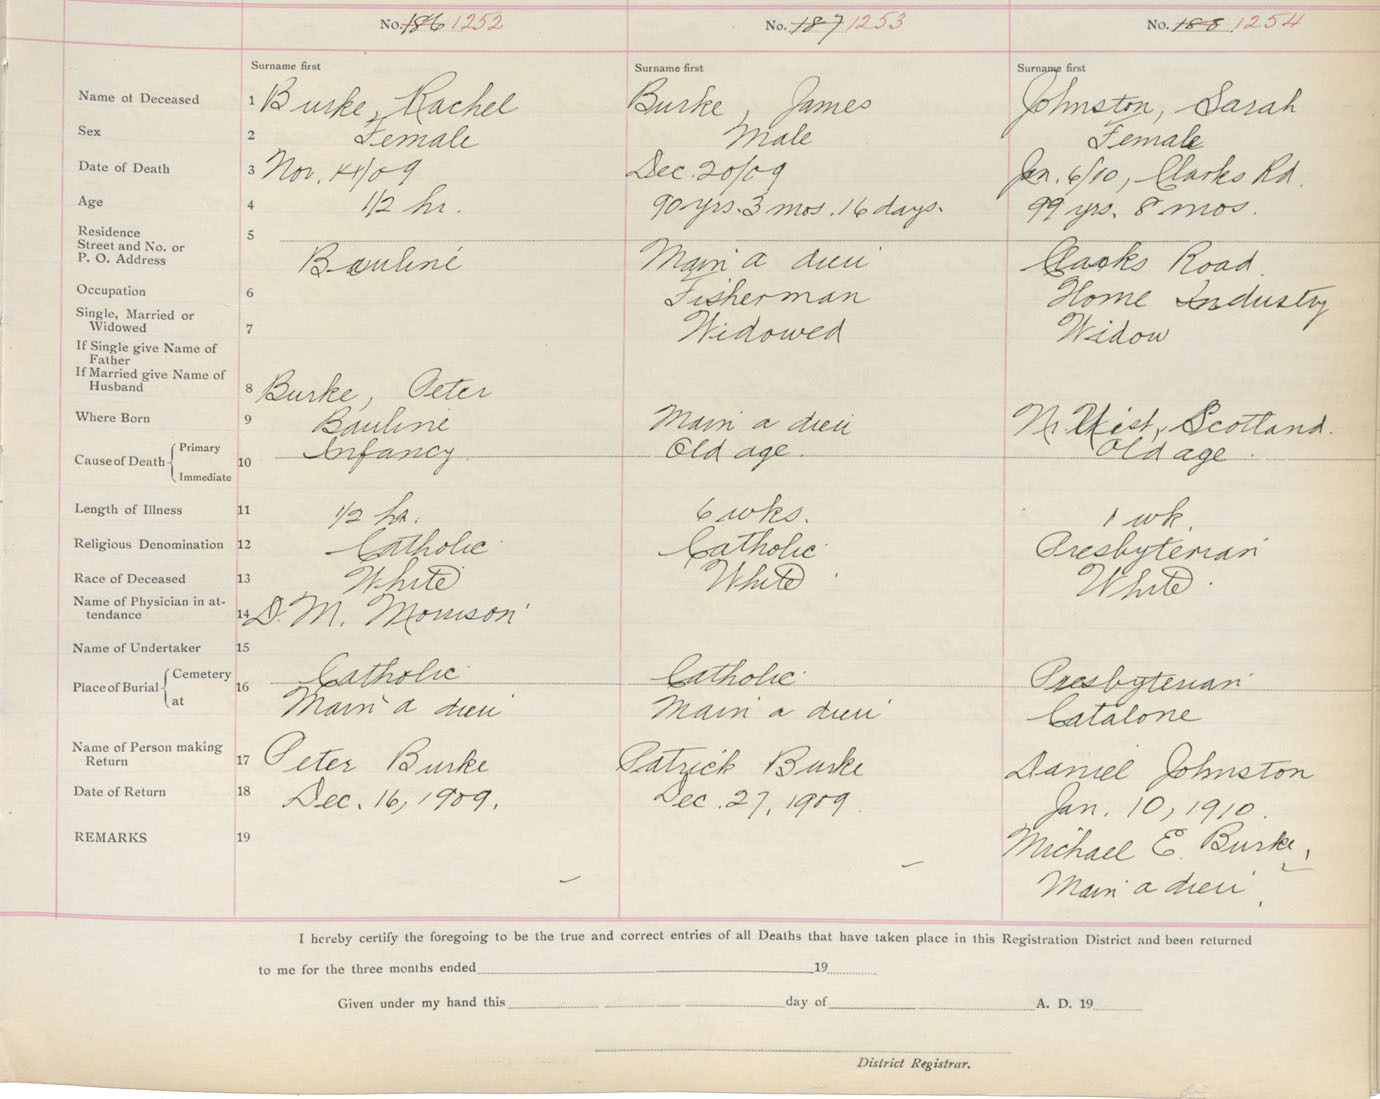 No. 186 1252 No. 187 1253 No. 188 1254
Surname first Surname first Surname first
Name of Deceased 1 Burke, Rachel Burke, James Johnston, Sarah
Sex 2 Female Male Female
Date of Death 3 Nov. 4/09 Dec. 20/09 Jan. 6/10, Clarks Rd.
Age 4 1/2 hr. 90 yrs. 3 mos. 16 days. 99 yrs. 8 mos.
Residence 5
Street and No. or
P. O. Address Bauline Main a dieu Clarks Road.
Occupation 6 Fisherman Home Industry
Single, Married or
Widowed 7 Widowed Widow
If Single give Name of
Father
If Married give Name of
Husband 8 Burke, Peter
Where Born 9 Bauline Main a dieu N. Uist, Scotland.
Cause of Death Primary Infancy Old age. Old age.
10
Immediate
Length of Illness 11 1/2 hr. 6 wks. 1 wk.
Religious Denomination 12 Catholic Catholic Presbyterian
Race of Deceased 13 White White White
Name of Physician in at-
tendance 14 D. M. Morrison
Name of Undertaker 15
Place of Burial Cemetery 16 Catholic Catholic Presbyterian
at Main a dieu Main a dieu Catalone
Name of Person making
Return 17 Peter Burke Patrick Burke Daniel Johnston
Date of Return 18 Dec. 16, 1909. Dec. 27, 1909. Jan. 10, 1910.
REMARKS 19 Michael E. Burke,
Main a dieu
I hereby certify the foregoing to be the true and correct entries of all Deaths that have taken place in this Registration District and been returned
to me for the three months ended 19
Given under my hand this day of A. D. 19
District Registrar.